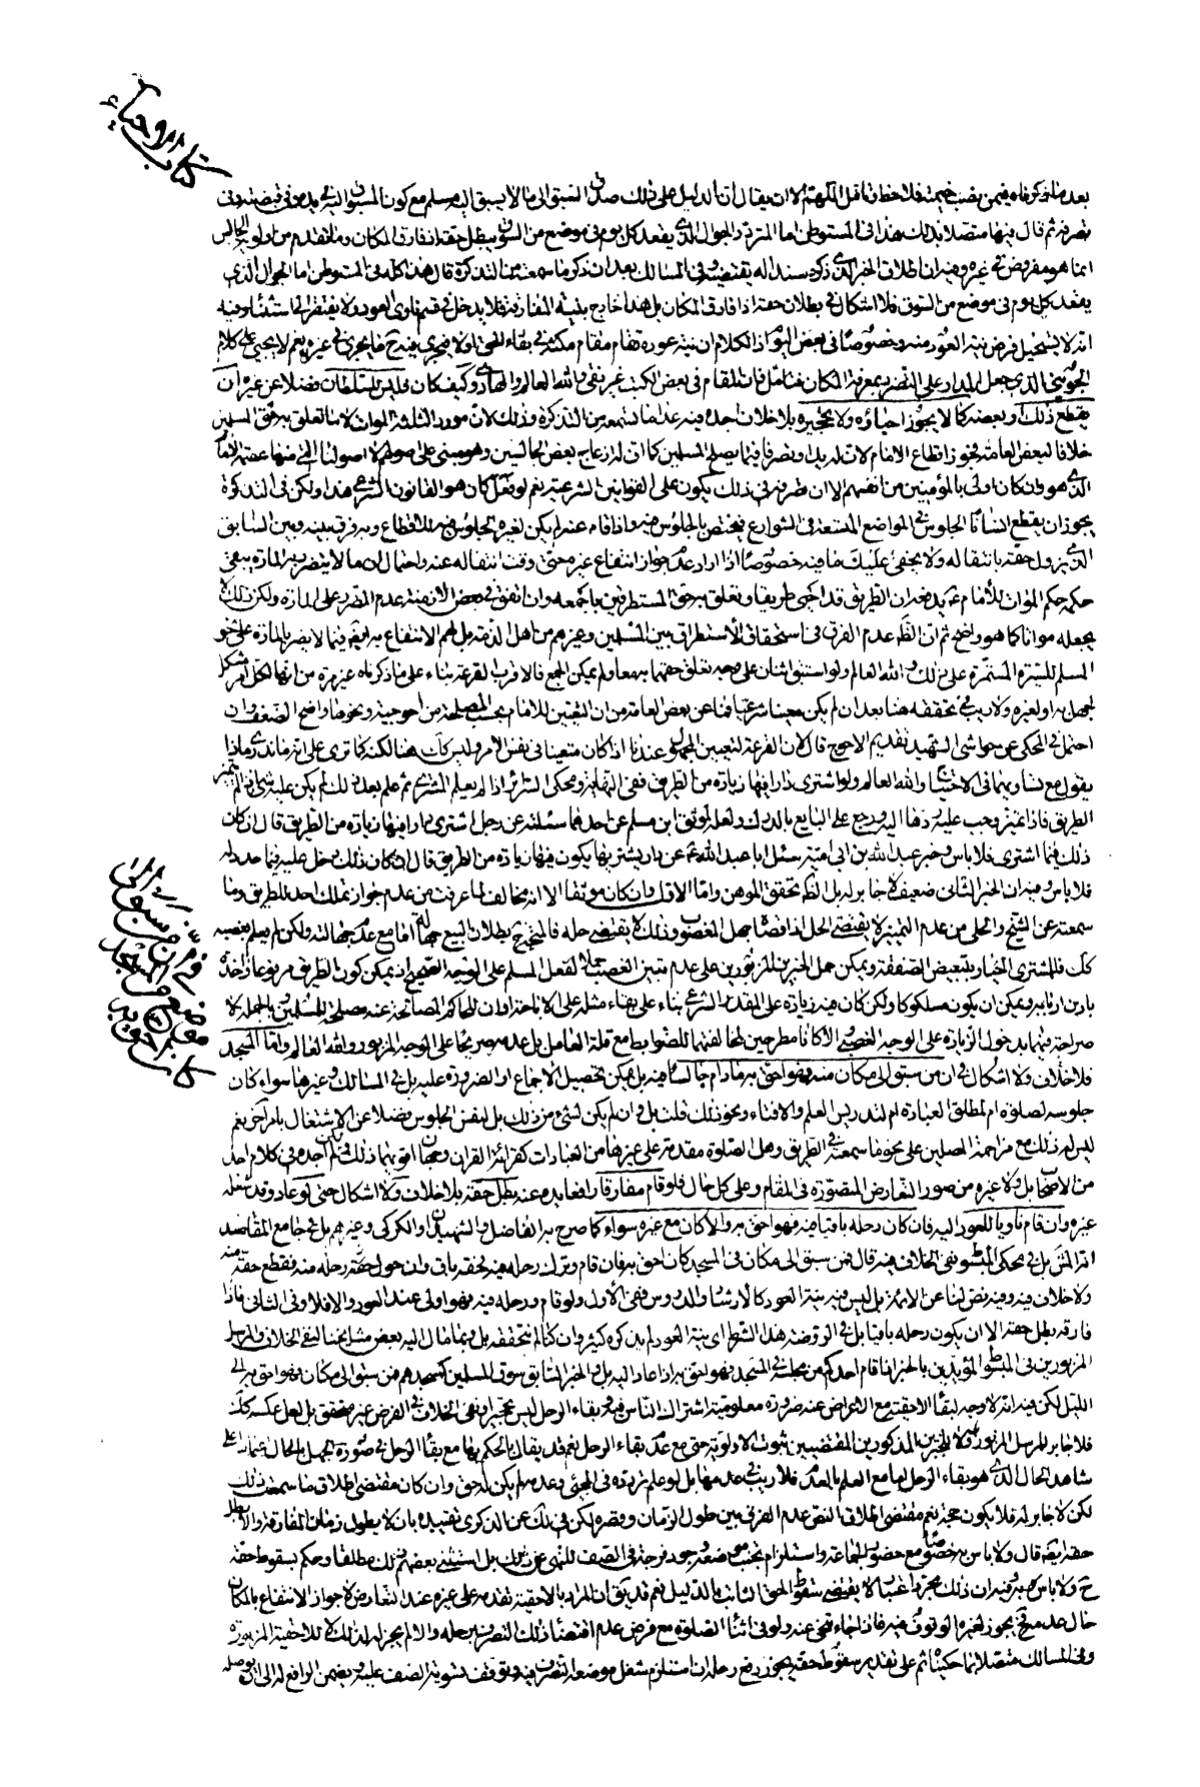 كتاب الاحياء
بعد ما ذكرناه فيمن نصب خيمة فلاحظ وتأمل اللهم الا ان يقال ان الدليل على ذلك صدق السبق الى ما لا يسبق اليه مسلم مع كون المسبوق اليه في يده وفي قبضته وفى
تصرفه ثم قال فيها متصلا بذلك هذا في المستوطن اما المتردد والجوال الذي يقعد كل يوم في موضع من السوق يبطل حقه اذا فارق المكان وما تقدم من اولوية الجالس
انما هو مفروض في غيره وفيه ان اطلاق الخبر الذي ذكره سندا له يقتضيه وفي المسالك بعد ان ذكر ما سمعته من التذكرة قال هذا كله في المستوطن اما الجوال الذي
يقعد كل يوم في موضع من السوق فلا اشكال في بطلان حقه اذا فارق المكان بل هذا خارج بنية المفارقة فلا يدخل في قسم ناوى العود ولا يفتقر الى استثنائه وفيه
انه لا يستحيل فرض نية العود منه وخصوصا في بعض اليوم اذ الكلام ان نية عوده تقام مقام مكثه في بقاء الحق اولا فيجرى فيه ما يجرى في غيره نعم لا يجئ على كلام
الجويني الذي جعل المدار على التضرر بمعرفة المكان فتأمل فان المقام في بعض الكتب غير نقى والله العالم والهادي وكيف كان فليس للسلطان فضلا عن غيره ان
يقطع ذلك او بعضه كما لا يجوز احياؤه ولا تحجيره بلا خلاف اجده فيه عدا ما تسمعه من التذكرة وذلك لان مورد الثلثة الموات لا ما تعلق به حق المسلمين
خلافا لبعض العامة فجوز اقطاع الامام لان له يدا وتصرفا فيما يصلح المسلمين كما ان له ازعاج بعض الجالسين وهو مبنى على اصولهم لا اصولنا التي منها عصمة الامام
الذي هو وان كان اولى بالمؤمنين من انفسهم الا ان طريقه في ذلك يكون على القوانين الشرعية نعم لو فعل كان هو القانون الشرعي هذا ولكن في التذكرة
يجوز ان يقطع انسانا الجلوس في المواضع المتسعة في الشوارع فيختص بالجلوس فيه واذا قام عنه لم يكن لغيره الجلوس فيه للاقطاع وبه فرق بينه وبين السابق
الذي يزول حقه بانتقاله ولا يخفى عليك ما فيه خصوصا اذا اراد عدم جواز انتفاع غيره حتى وقت انتقاله عنه واحتمال ان ما لا يتضرر به المارة يبقى
حكمه حكم الموات للأمام عم يدفعه ان الطريق قد احيى طريقا وتعلق به حق المستطرقين باجمعه وان اتفق في بعض الازمنة عدم الضرر على المارة ولكن ذلك لا
يجعله مواتا كما هو واضح ثم ان الظ عدم الفرق في استحقاق الاستطراق بين المسلمين وغيرهم من اهل الذمة بل لهم الانتفاع به ايضا فيما لا يضر بالمارة على نحو
المسلم للسيرة المستمرة على ذلك والله العالم ولو استبق اثنان على وجه تعلق حقهما به معا ولم يمكن الجمع فالاقرب القرعة بناء على ما ذكرناه غير مرة من انها لكل امر مشكل
مجهول به او لغيره ولا ريب في تحققه هنا بعد ان لم يكن مبينا شرعيا فما عن بعض العامة من ان التعيين للامام بحسب المصلحة من احوجية ونحوها واضح الضعف وان
احتمل في المحكي عن حواشى الشهيد تقديم الاحوج قال لان القرعة لتعيين المجهول وعندنا اذا كان متعينا في نفس الامر وليس كك هنا لكنه كما ترى على انه ما ندرى ماذا
يقول مع تساويهما في الاحتياج والله العالم ولو اشترى دارا فيها زيادة من الطريق ففي النهاية ومحكي السرائر اذا لم يعلم المشترى ثم علم بعد ذلك لم يكن عليه شئ اذا لم يتميز
الطريق فاذا تميز وجب عليه ردها اليه ورجع على البايع بالدرك ولعله لموثق ابن مسلم عن احدهما سئلته عن رجل اشترى دارا فيها زيادة من الطريق قال ان كان
ذلك فيما اشترى فلا باس وخبر عبد الله بن ابي امية سئل ابا عبد الله عم عن دار يشتريها يكون فيها زيادة من الطريق قال ان كان ذلك دخل عليه فيما حدد له
فلا باس وفيه ان الخبر الثانى ضعيف لا جابر له بل الظ تحقق الموهن واما الاول وان كان موثقا الا انه مخالف لما عرفت من عدم جواز تملك احد للطريق وما
سمعته عن الشيخ والحلى من عدم التميز لا يقتضى الحل اذ اقصاه جهل المغصوب وذلك لا يقتضى حله فالمتجه ح بطلان البيع جهالته اما مع عدم جهالته ولكن لم يعلم بغصبه
كك فللمشترى الخيار بتبعيض الصفقة ويمكن حمل الخبرين المزبورين على عدم تبين الغصب حملا لفعل المسلم على الوجه الصحيح اذ يمكن كون الطريق مرفوعا واخذه
باذن اربابه ويمكن ان يكون مسلوكا ولكن كان فيه زيادة على المقدر الشرعي بناء على بقاء مثله على الاباحة او ان للحاكم المصالحة عنه مصلحة للمسلمين بالجملة لا
صراحة فيهما بدخول الزيادة على الوجه الغصبى والا كانا مطرحين لمخالفتهما للضوابط مع قلة العامل بل عدمه صريحا على الوجه المزبور والله العالم واما المسجد
فلا خلاف ولا اشكال في ان من سبق الى مكان منه فهو احق به ما دام جالسا فيه بل يمكن تحصيل الاجماع او الضرورة عليه بل في المسالك وغيرها سواء كان
جلوسه لصلوة ام لمطلق العبادة ام لتدريس العلم والافتاء ونحو ذلك قلت بل في ان لم يكن لشئ من ذلك بل لنفس الجلوس فضلا عن الاشتغال بامر آخر نعم
ليس له ذلك مع مزاحمة المصلين على نحو ما سمعته في الطريق وهل الصلوة مقدمة على غيرها من العبادات كقرائة القران وجهان اقويهما ذلك وان لم اجده في كلام احد
من الاصحاب بل ولا غيره من صور التعارض المتصورة في المقام وعلى كل حال فلو قام مفارقا رافعا يده عنه بطل حقه بلا خلاف ولا اشكال حتى لو عاد وقد شغله
غيره وان قام ناويا للعود اليه فان كان رحله باقيا فيه فهو احق به والا كان مع غيره سواء كما صرح به الفاضل والشهيدان والكركى وغيرهم بل في جامع المقاصد
انه المش بل في محكي المبسوط نفي الخلاف فيه قال فمن سبق الى مكان في المسجد كان احق به فان قام وترك رحله فيه فحقه باق وان حول رحله منه فقطع حقه منه
ولا خلاف فيه وفيه نص لنا عن الائمة بل ليس فيه نية العود كالارشاد والدروس ففي الأول ولو قام ورحله فيه فهو اولى عند العود والا فلا وفي الثانى فاذا
فارقه بطل حقه الا ان يكون رحله باقيا بل في الروضة هذا الشرط اى نية العود لم يذكره كثير وان كنا لم نتحققه بل ربما مال اليه بعض مشايخنا لنفي الخلاف والمرسل
المزبورين في المبسوط المؤيدين بالخبر اذا قام احدكم من مجلسه في المسجد فهو احق به اذا عاد اليه بل والخبر السابق سوق المسلمين كمسجدهم فمن سبق الى مكان فهو احق به الى
الليل لكن فيه انه لا وجه لبقاء الاحقية مع الاعراض عنه ضرورة معلومية اشتراك الناس فيه وبقاء الرحل ليس تحجيرا ونفي الخلاف في الفرض غير متحقق بل لعل عكسه كك
فلا جابر للمرسل المزبور بل ولا للخبرين المذكورين المقتضيين ثبوت الاولوية حتى مع عدم بقاء الرحل نعم قد يقال الحكم بها مع بقاء الرحل في صورة الجهل بالحال عملا على
شاهد الحال الذي هو بقاء الرحل اما مع العلم بالعدم فلا ريب في عدمها بل لو علم تردده في المجئ وعدمه لم يكن له حق وان كان مقتضى اطلاق ما سمعت ذلك
لكن لا جابر له فلا يكون حجة نعم مقتضى اطلاق النص عدم الفرق بين طول الزمان وقصره لكن في ذلك عن الذكرى تقييده بان لا يطول زمان المفارقة والا بطل
حقه ايضا قال ولا باس به خصوصا مع حضور الجماعة واستلزام تجنب موضعه وجود فرجة في الصف للنهى عن ذلك بل استثنى بعضهم ذلك مطلقا وحكم بسقوط حقه
ح ولا باس به وفيه ان ذلك مجرد اعتبار لا يقتضى سقوط الحق الثابت بالدليل نعم قد يق ان المراد بالاحقية تقدمه على غيره عند التعارض لا جواز الانتفاع بالمكان
حال عدمه فح يجوز لغيره الوقوف فيه فاذا جاء تنحى عنه ولو في اثناء الصلوة مع فرض عدم اقتضاء ذلك التصرف برحله والا لم يجز له لذلك لا للاحقية المزبورة
وفي المسالك متصلا بما حكيناه ثم على تقدير سقوط حقه يجوز رفع رحله ان استلزم شغل موضعه التصرف فيه وتوقف تسوية الصف عليه ويضمن الرافع له الى ان يوصله
في ان من سبق الى
موضع من المسجد
كان احق به